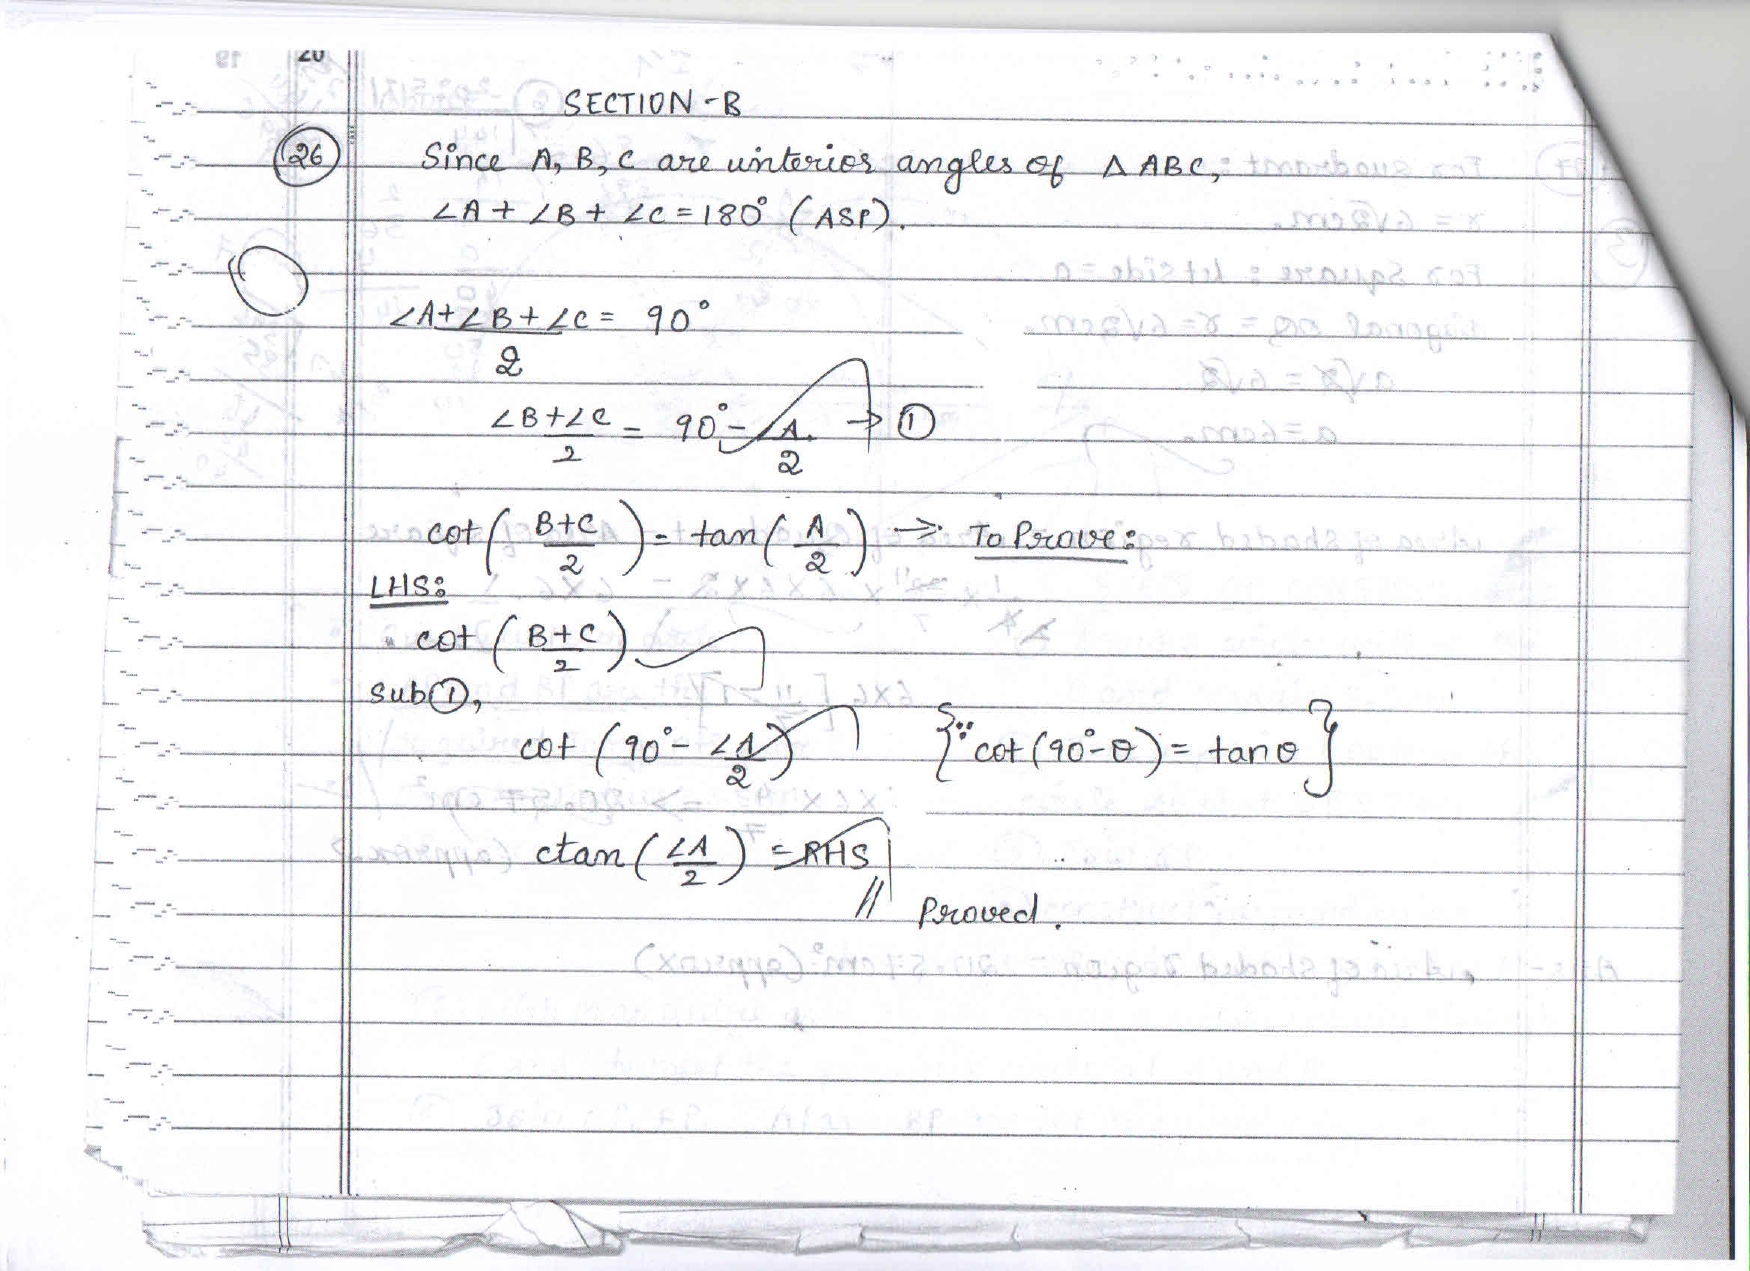 20
SECTION-B
26 Since A, B, C are interior angles of Δ ABC,
∠A + ∠B + ∠C = 180° (ASP).
(∠A + ∠B + ∠C)/2 = 90°
(∠B + ∠C)/2 = 90° - ∠A/2 → ①
cot((B+C)/2) = tan(A/2) → To Prove:
LHS:
cot((B+C)/2)
Sub ①,
cot(90° - ∠A/2) {∵ cot(90°-θ) = tanθ}
tan(∠A/2) = RHS
// Proved.